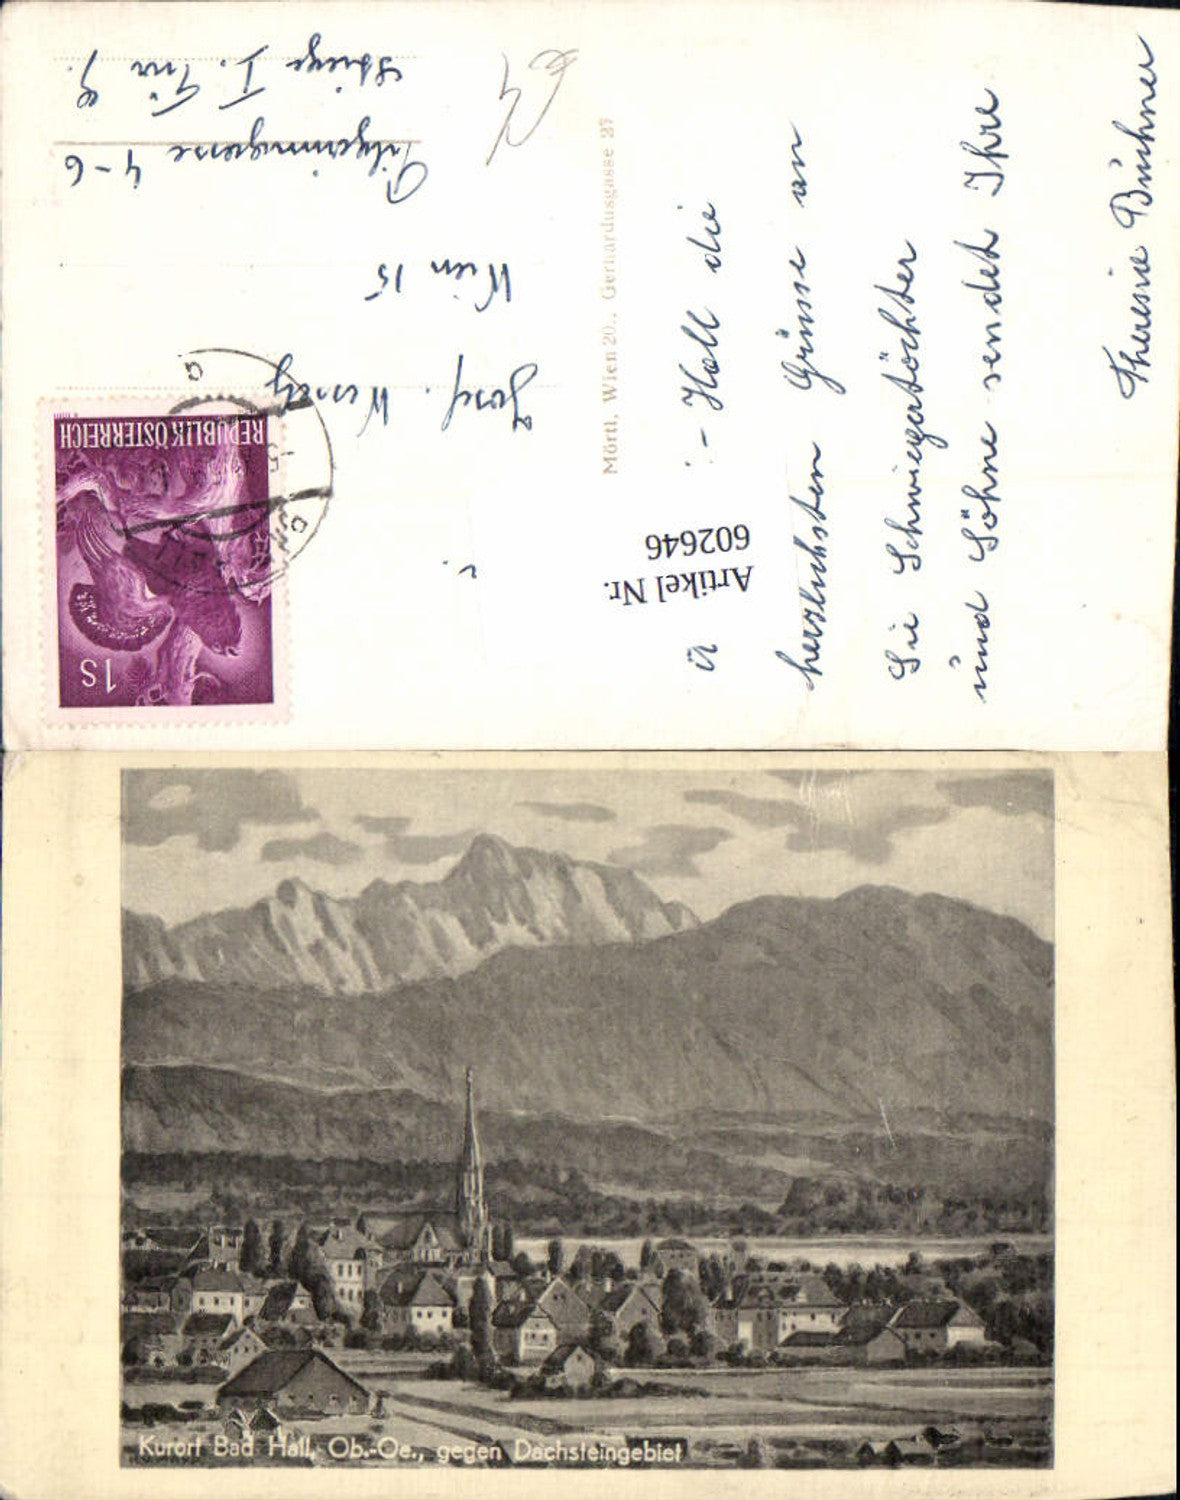 :- Hall die
herzlichsten Grüsse an
Sie Schwiegertöchter
und Söhne sendet Ihre
Theresie Bühner
Mörtl, Wien 20., Gerhardusgasse 27
Artikel Nr.
602646
REPUBLIK ÖSTERREICH
1S
Josef. Wessely
Wien 15
Pilgerimgasse 4-6
Stiege I. Tür 9.
Kurort Bad Hall, Ob.-Oe., gegen Dachsteingebiet